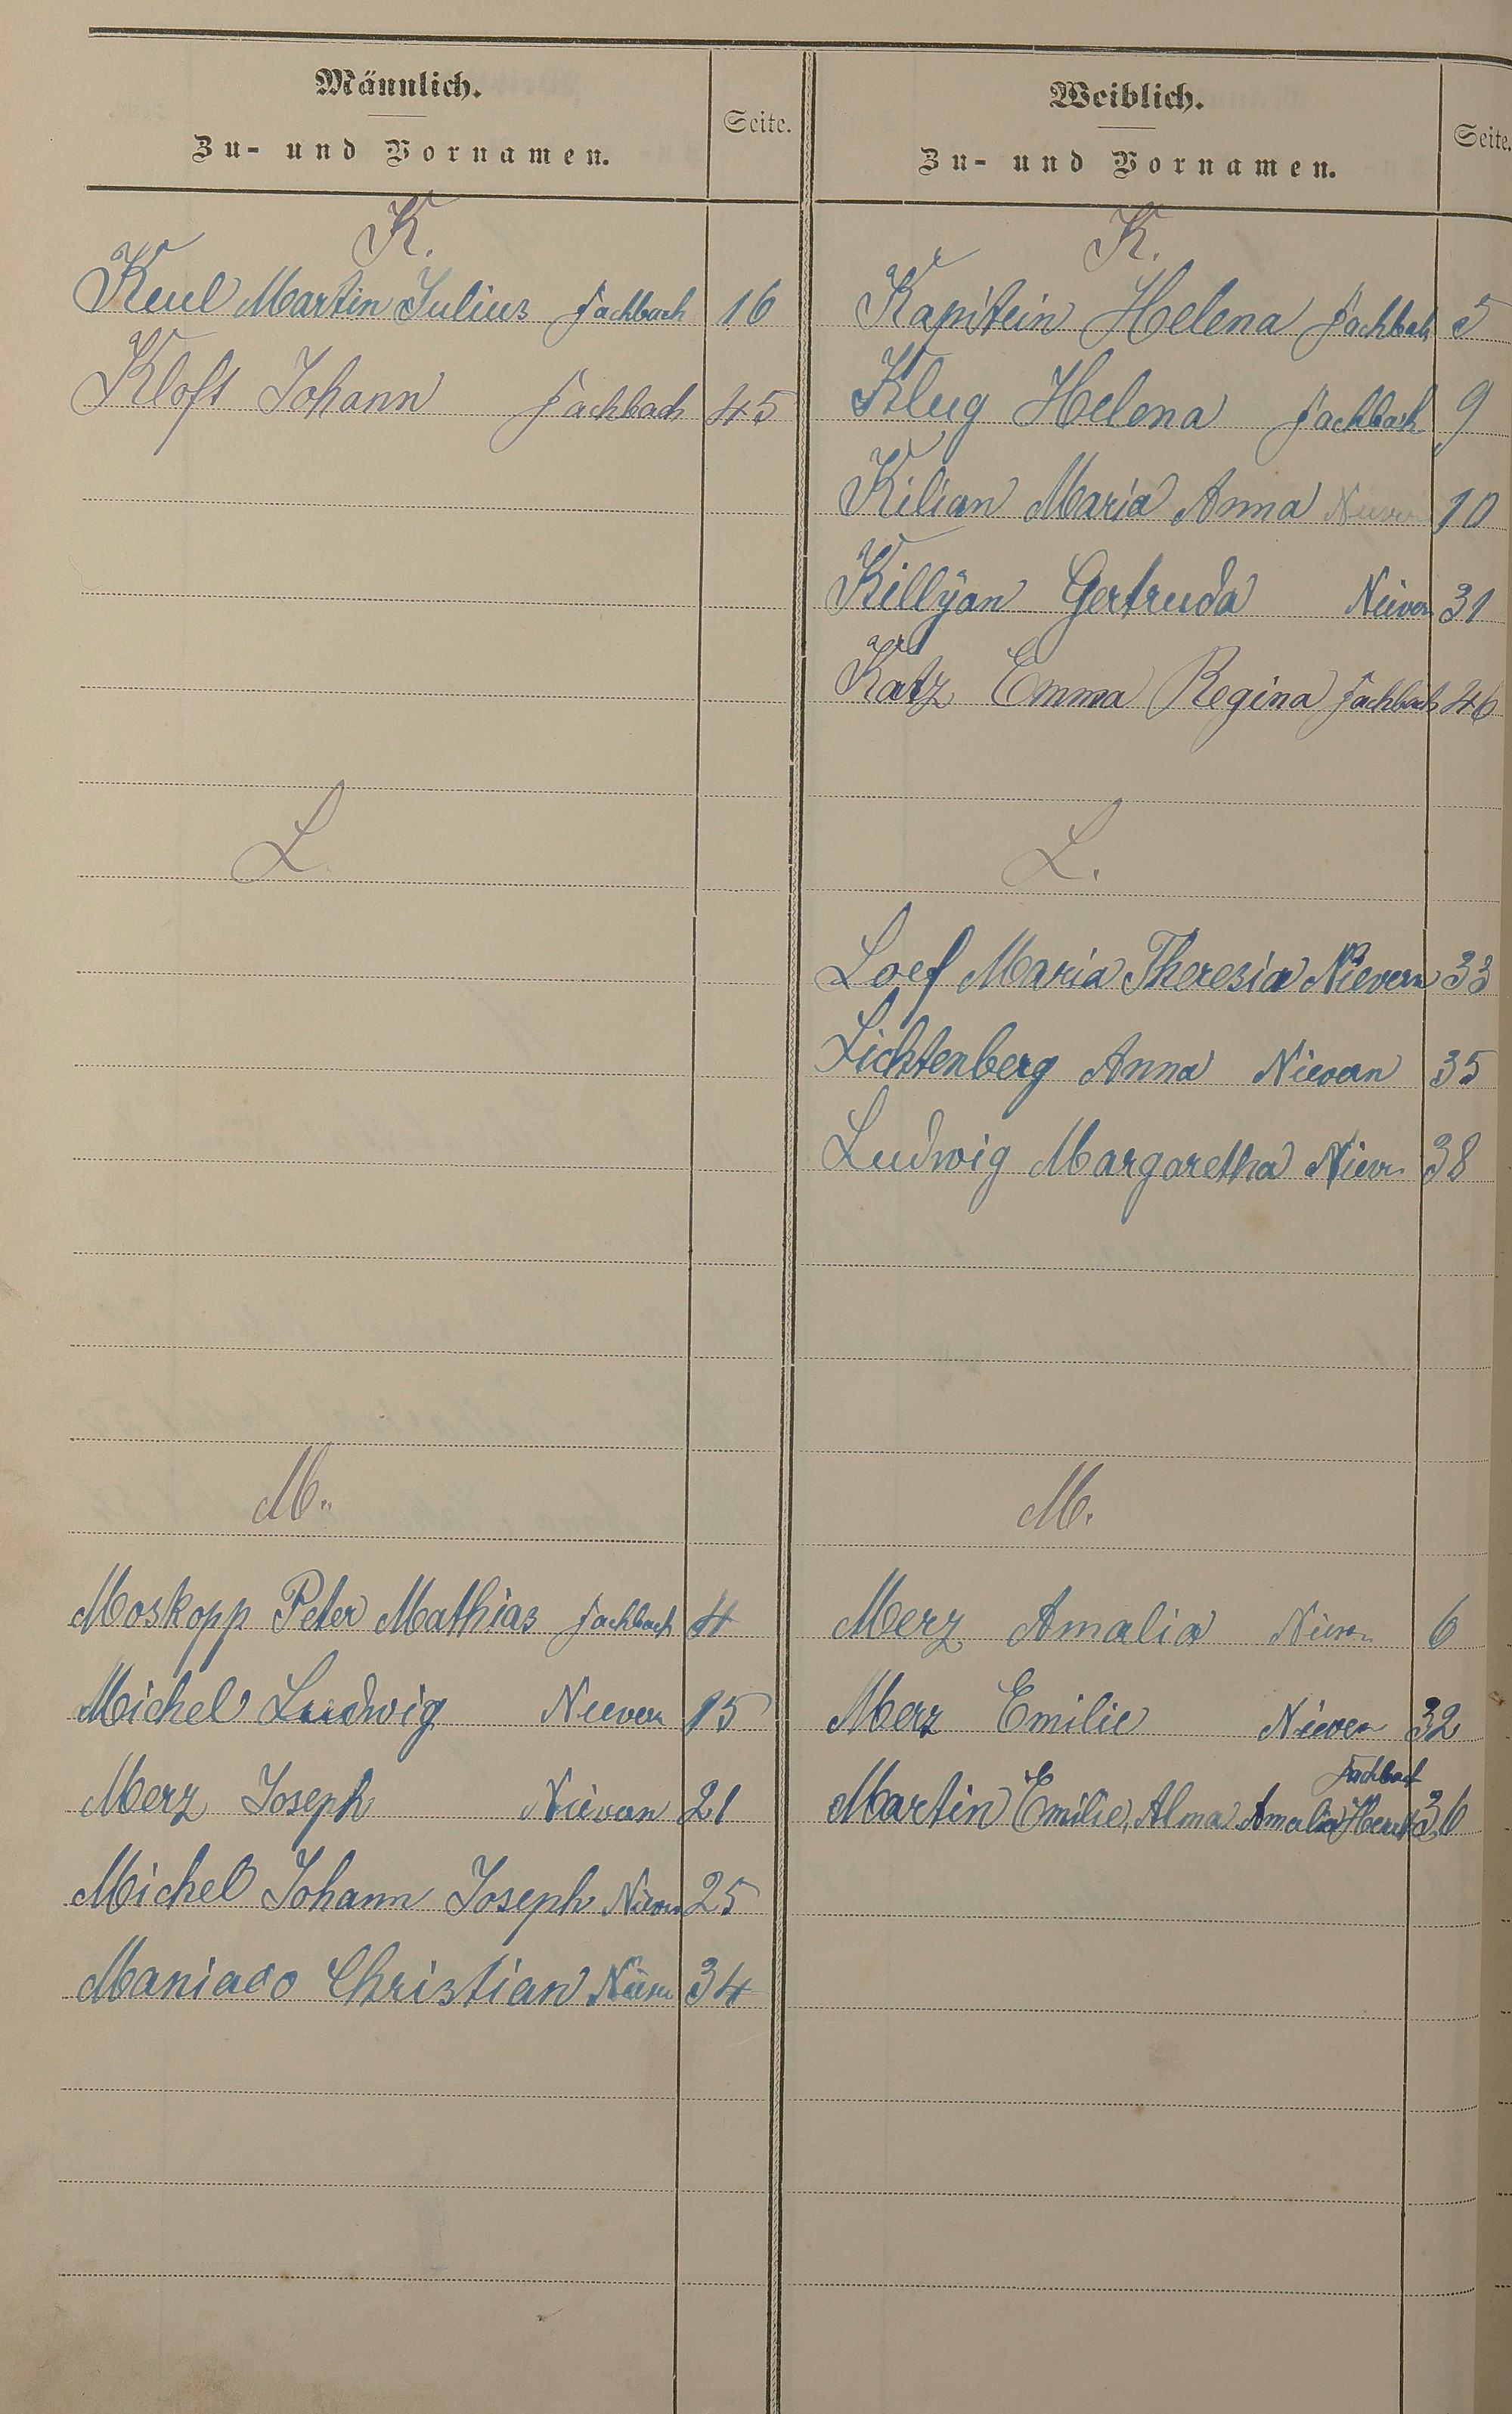 Männlich.
Zu- und Vornamen.
Seite.
K.
Keul Martin Julius Fachbach 16
Kloft Johann Fachbach 45
L.
M.
Moskopp Peter Mathias Fachbach 4
Michel Ludwig Nievern 15
Merz Joseph Nievern 21
Michel Johann Joseph Nievern 25
Maniaco Christian Nievern 34
Weiblich.
Zu- und Vornamen.
Seite.
K.
Kapitein Helena Fachbach 5
Klug Helena Fachbach 9
Kilian Maria Anna Nievern 10
Killÿan Gertruda Nievern 31
Katz Emma Regina Fachbach 46
L.
Loef Maria Theresia Nievern 33
Lichtenberg Anna Nievern 35
Ludwig Margaretha Nievern 38
M.
Merz Amalia Nievern 6
Merz Emilie Nievern 32
Fachbach
Martin Emilie, Alma Amalia 36